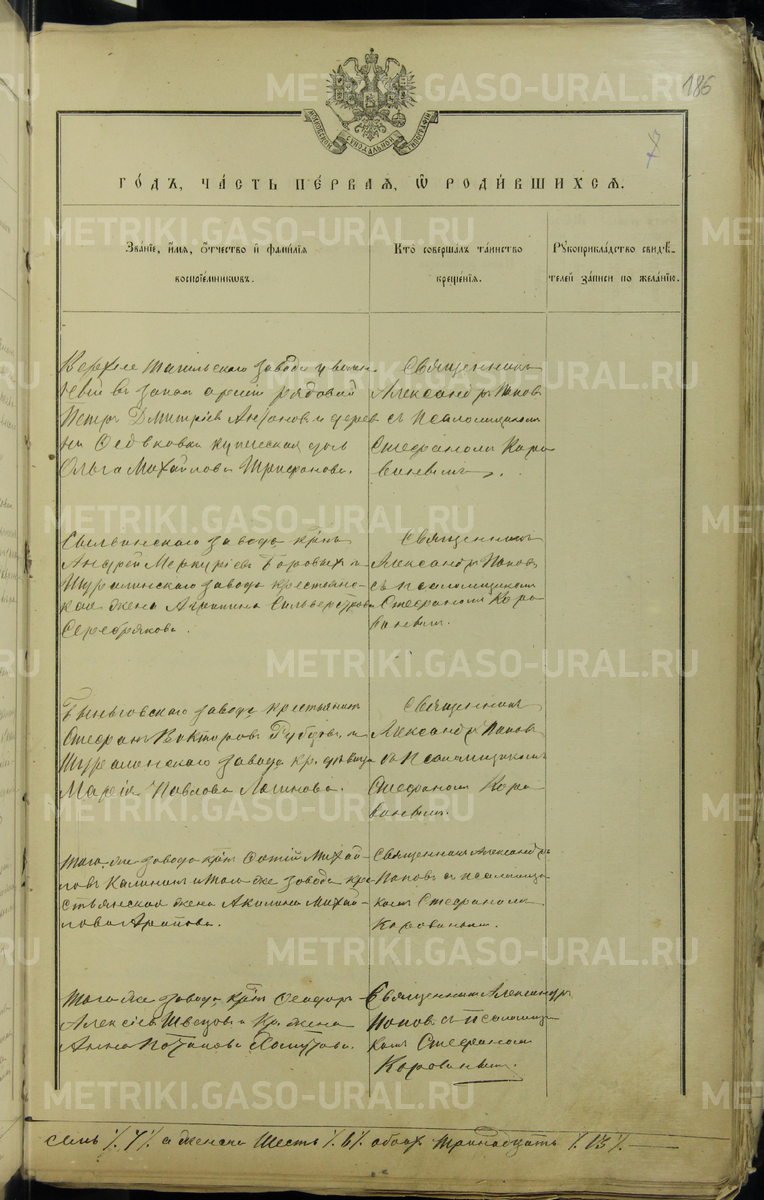 186
МОСКОВСКОЙ СѴНОДАЛЬНОЙ ТИПОГРАФІИ
ГОДЪ, ЧАСТЬ ПЕРВАЯ, Ѡ РОДИВШИХСЯ.
Званіе, имя, отчество и фамилія
воспріемниковъ.
Кто совершалъ таинство
крещенія.
Рукоприкладство свидѣ-
телей записи по желанію.
Верхне Тагильскаго завода
въ запас арміи рядовой
Петръ Дмитріевъ и дерев
ни купеческая дочь
Ольга Михайлова Трифанова.
Священникъ
Александръ Поповъ
съ Псаломщикомъ
Стефаномъ Коро
винымъ.
Сылвинскаго завода крѣнъ
Андрей Меркуріевъ Боровыхъ и
Шуралинскаго завода крестьянс-
кая жена Агрипина Сильверстрова
Серебрякова.
Священникъ
Александръ Поповъ
съ псаломщикомъ
Стефаномъ Коро
винымъ.
Быньговскаго завода крестьянинъ
Стефанъ Викторовъ Рубцовъ и
Шуралинскаго завода кр. дѣвица
Марія Павлова Логинова.
Священникъ
Александръ Поповъ
съ Псаломщикомъ
Стефаномъ Коро
винымъ.
Того же завода крѣн Михай-
ловъ Калининъ и того же завода кре
стьянская жена Акилина Михай-
лова Арапова.
Священникъ Александръ
Поповъ съ псаломщи
комъ Стефаномъ
Коровинымъ.
Того же завода крѣн Феодоръ
Алексіевъ Швецовъ и Кр. жена
Анна Потапова Хомутова.
Священникъ Александръ
Поповъ съ псаломщи
комъ Стефаномъ
Коровинымъ.
семь /.7/. а женска Шесть /.6/. обоего тринадцать /.13/.
METRIKI.GASO-URAL.RU